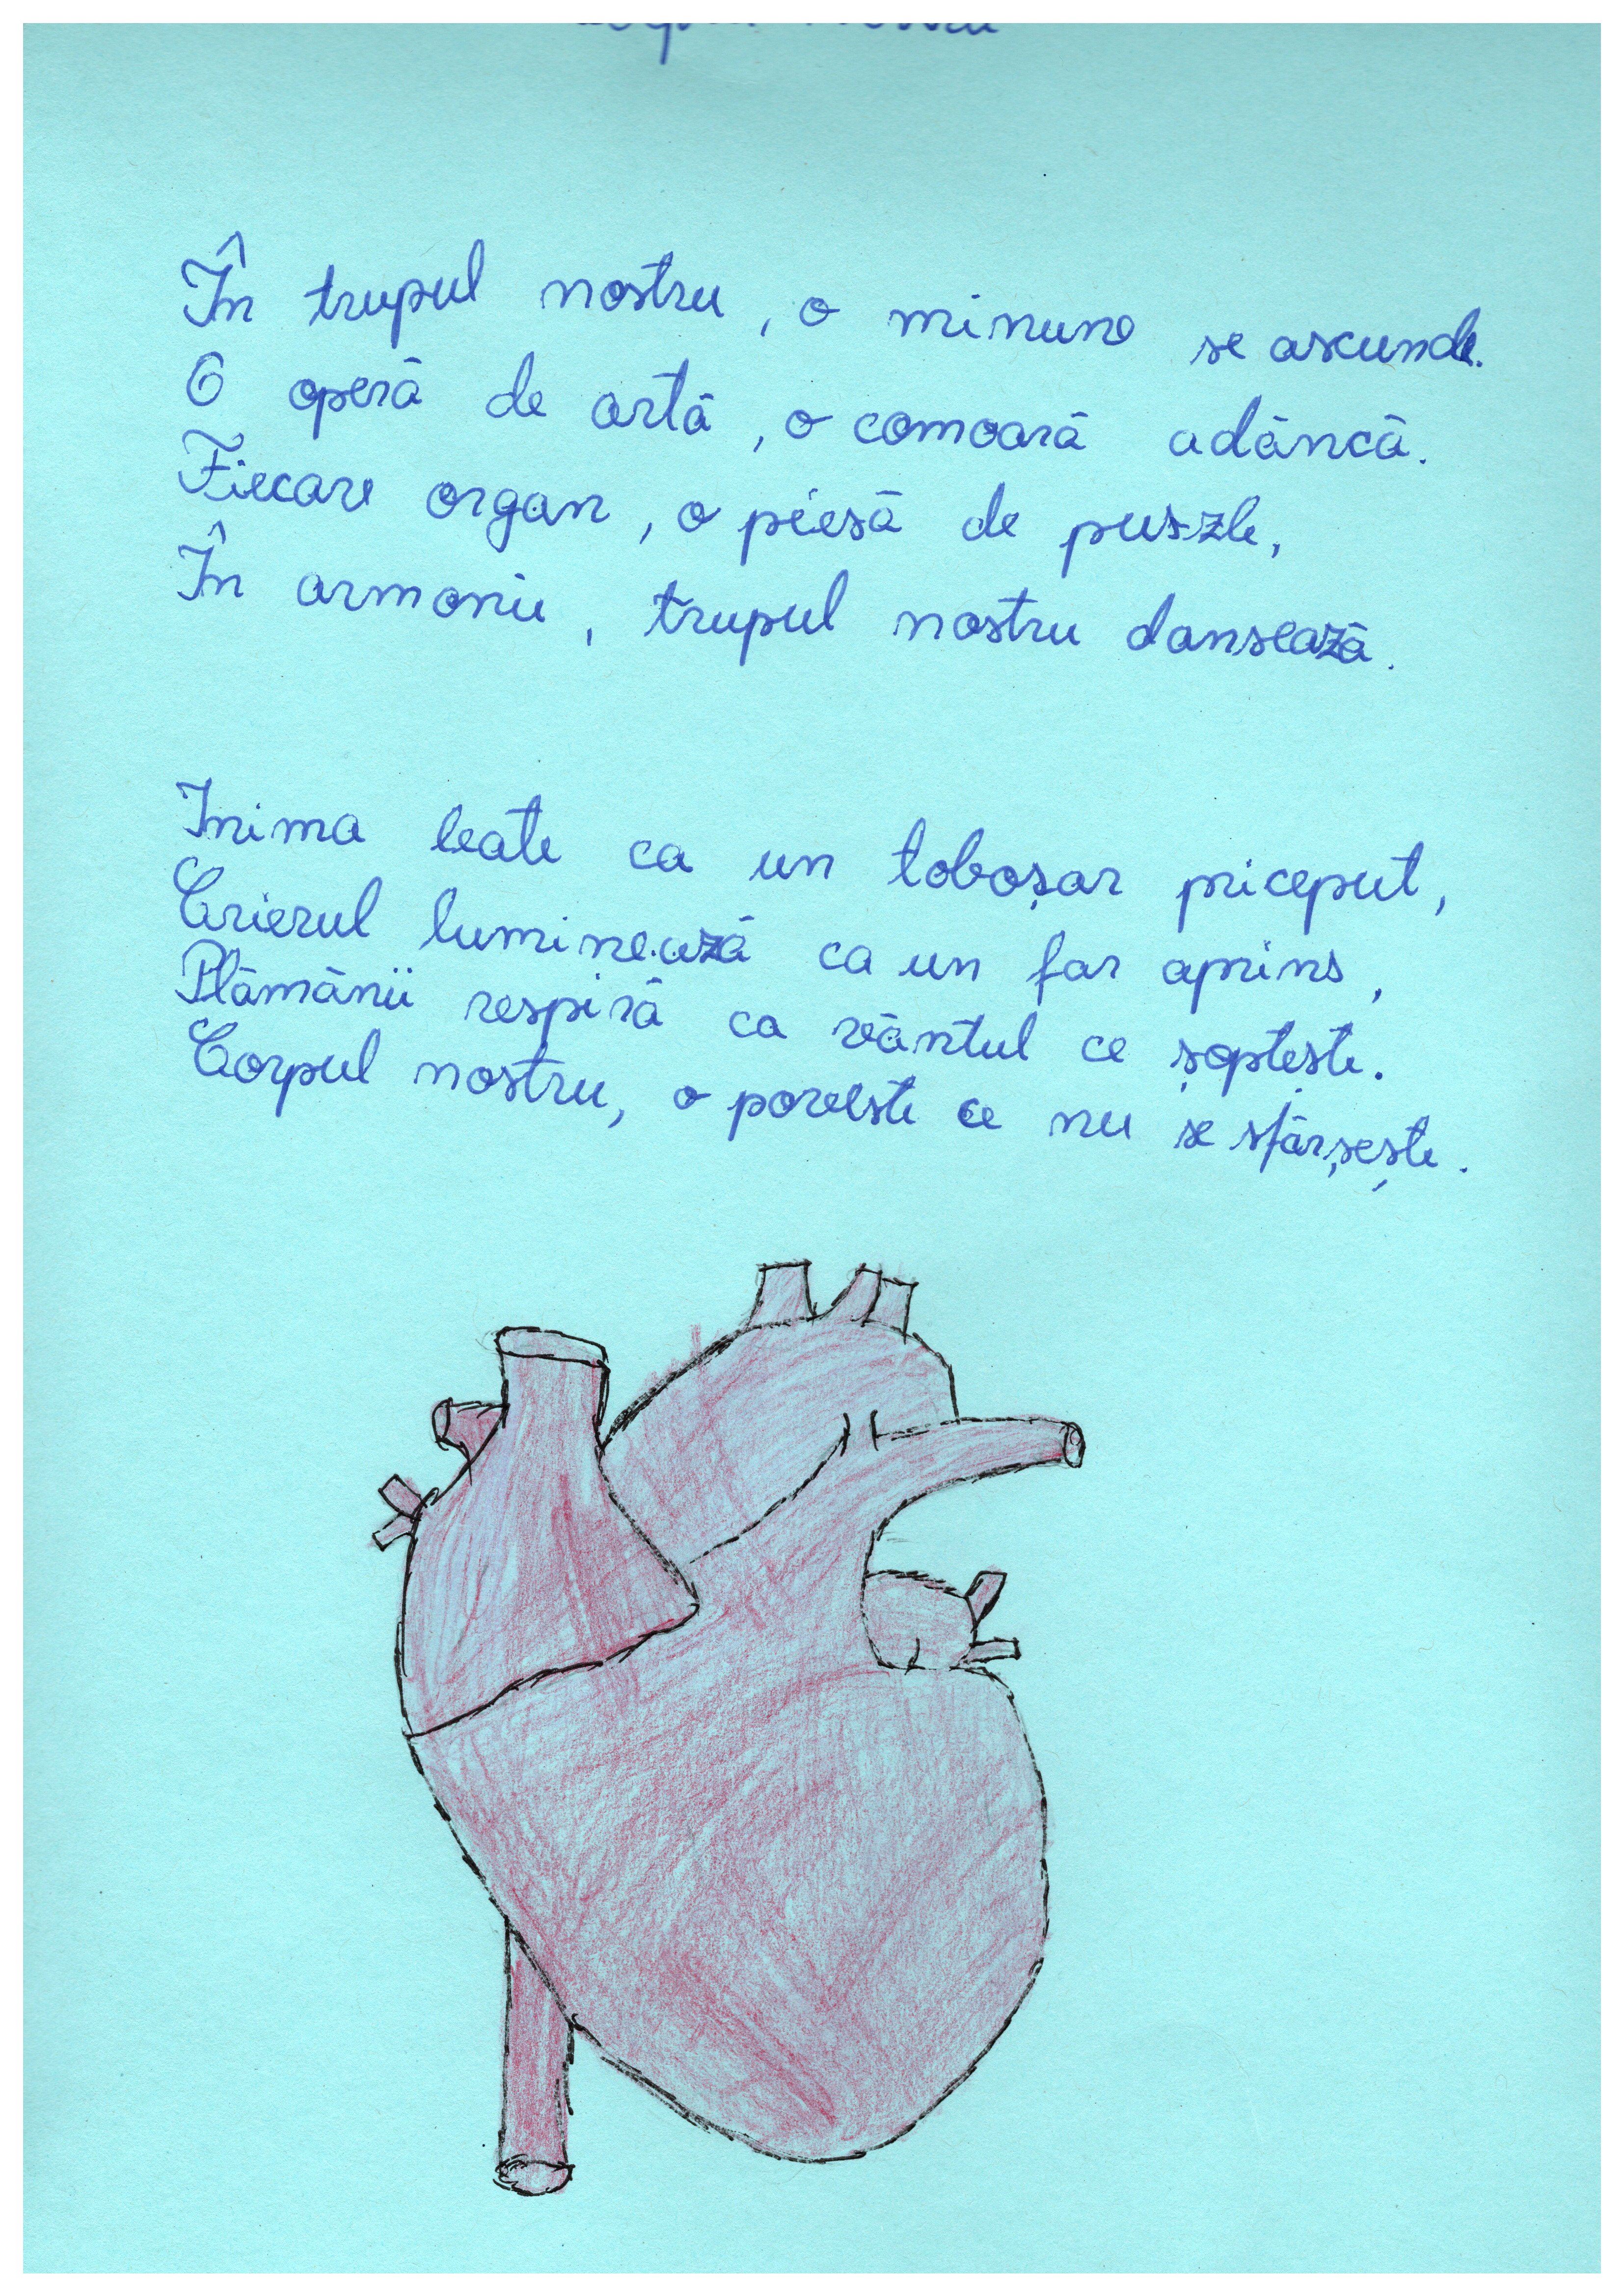 În trupul nostru, o minune se ascunde.
O operă de artă, o comoară adâncă.
Fiecare organ, o piesă de puszle,
În armonie, trupul nostru dansează.
Inima beate ca un toboșar priceput,
Crierul luminează ca un far aprins,
Plămânii respiră ca vântul ce șoptește.
Corpul nostru, o poveste ce nu se sfârșește.